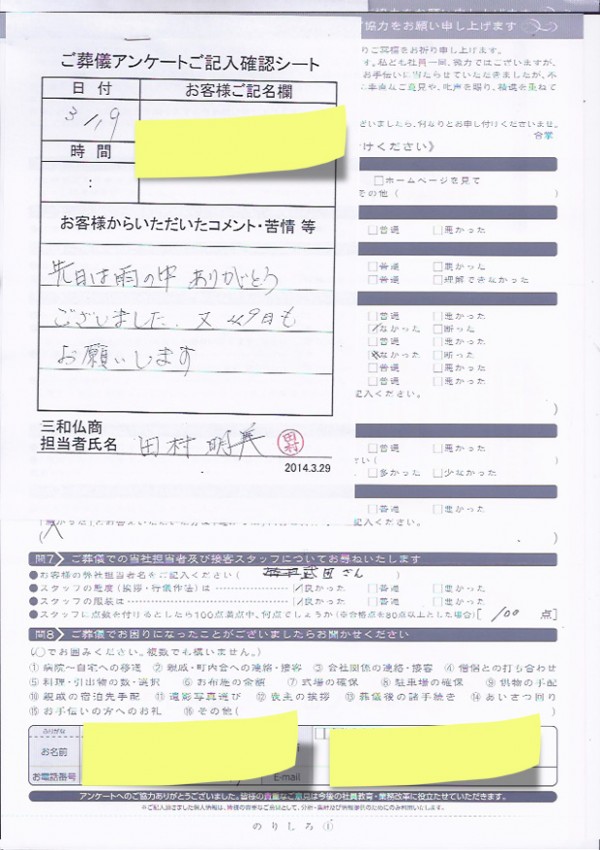 協力をお願い申し上げます
ご葬儀アンケートご記入確認シート
日付
お客様ご記名欄
3/19
時間
:
お客様からいただいたコメント・苦情 等
先日は雨の中 ありがとう
ございました、又 49日も
お願いします
三和仏商
担当者氏名 田村 明美 田村
2014.3.29
りご冥福をお祈り申し上げます。
す。私ども社員一同、微力ではございますが、
お手伝いに当たらせていただきましたが、不
に率直なご意見や、叱声を賜り、精進を重ねて
ざいましたら、何なりとお申し付けくださいませ。
合掌
けください》
□ホームページを見て
その他 (
□普通 □悪かった
□普通 □悪かった
□普通 □理解できなかった
□普通 □悪かった
なかった □断った
□普通 □悪かった
なかった □断った
□普通 □悪かった
□普通 □悪かった
記入ください。
□普通 □悪かった
さい (
□多かった □少なかった
□普通 □悪かった
記入ください。
問7 ご葬儀での当社担当者及び接客スタッフについてお尋ねいたします
●お客様の弊社担当者名をご記入ください ( 武田さん )
●スタッフの態度 (挨拶・行儀作法) は □良かった □普通 □悪かった
●スタッフの服装は □良かった □普通 □悪かった
●スタッフに点数を付けるとしたら100点満点中、何点でしょうか (※合格点を80点以上とした場合) [ 100 点]
問8 ご葬儀でお困りになったことがございましたらお聞かせください
(○でお囲みください。複数でも構いません。)
①病院~自宅への移送 ②親戚・町内会への連絡・接客 ③会社関係の連絡・接客 ④僧侶との打ち合わせ
⑤料理・引出物の数・選択 ⑥お布施の金額 ⑦式場の確保 ⑧駐車場の確保 ⑨供物の手配
⑩親戚の宿泊先手配 ⑪遺影写真選び ⑫喪主の挨拶 ⑬葬儀後の諸手続き ⑭あいさつ回り
⑮お手伝いの方へのお礼 ⑯その他 ( )
ふりがな
お名前
お電話番号
E-mail
アンケートへのご協力ありがとうございました。皆様の貴重なご意見は今後の社員教育・業務改革に役立たせていただきます。
のりしろ①